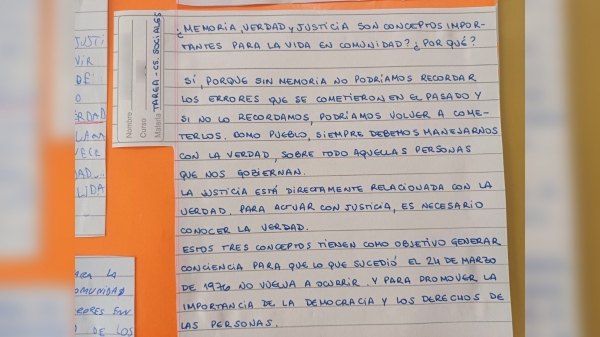 ¿MEMORIA, VERDAD Y JUSTICIA SON CONCEPTOS IMPOR-
TANTES PARA LA VIDA EN COMUNIDAD? ¿POR QUÉ?
SÍ, PORQUE SIN MEMORIA NO PODRÍAMOS RECORDAR
LOS ERRORES QUE SE COMETIERON EN EL PASADO Y
SI NO LO RECORDAMOS, PODRÍAMOS VOLVER A COME-
TERLOS. COMO PUEBLO, SIEMPRE DEBEMOS MANEJARNOS
CON LA VERDAD, SOBRE TODO AQUELLAS PERSONAS
QUE NOS GOBIERNAN.
LA JUSTICIA ESTÁ DIRECTAMENTE RELACIONADA CON LA
VERDAD. PARA ACTUAR CON JUSTICIA, ES NECESARIO
CONOCER LA VERDAD.
ESTOS TRES CONCEPTOS TIENEN COMO OBJETIVO GENERAR
CONCIENCIA PARA QUE LO QUE SUCEDIÓ EL 24 DE MARZO
DE 1976 NO VUELVA A OCURRIR. Y PARA PROMOVER LA
IMPORTANCIA DE LA DEMOCRACIA Y LOS DERECHOS DE
LAS PERSONAS.
Nombre
Curso
Materia TAREA - CS. SOCIALES
JUSTI
VIR
DE
VERDAD
LIDA
PARA LA
COMUNIDAD
ERRORES EN
DE LOS